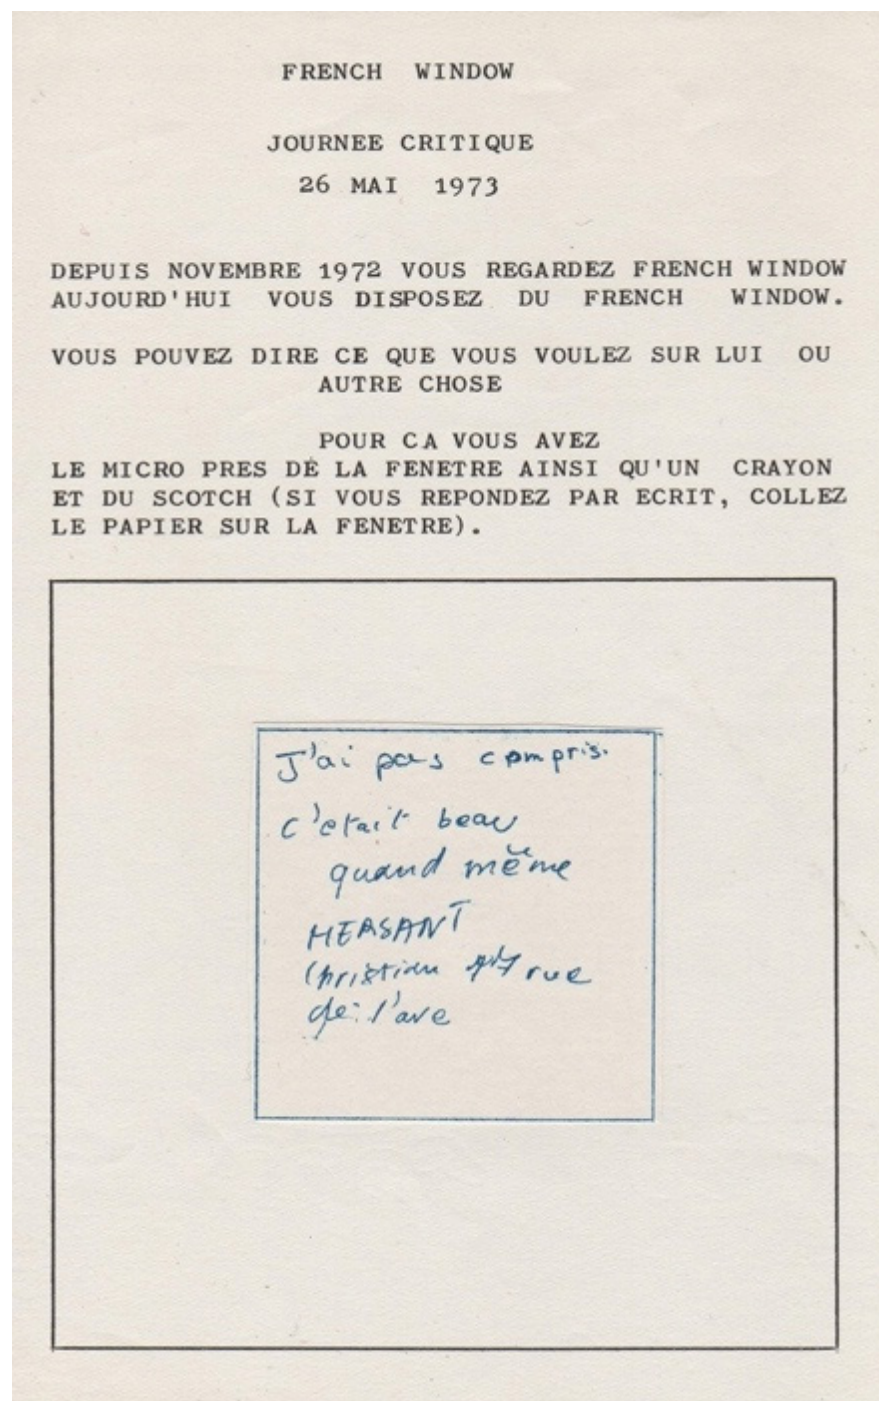 FRENCH WINDOW
JOURNEE CRITIQUE
26 MAI 1973
DEPUIS NOVEMBRE 1972 VOUS REGARDEZ FRENCH WINDOW
AUJOURD'HUI VOUS DISPOSEZ DU FRENCH WINDOW.
VOUS POUVEZ DIRE CE QUE VOUS VOULEZ SUR LUI OU
AUTRE CHOSE
POUR CA VOUS AVEZ
LE MICRO PRES DE LA FENETRE AINSI QU'UN CRAYON
ET DU SCOTCH (SI VOUS REPONDEZ PAR ECRIT, COLLEZ
LE PAPIER SUR LA FENETRE).
J'ai pas compris.
c'etait beau
quand même
HERSANT
Christian rue
de l'ave